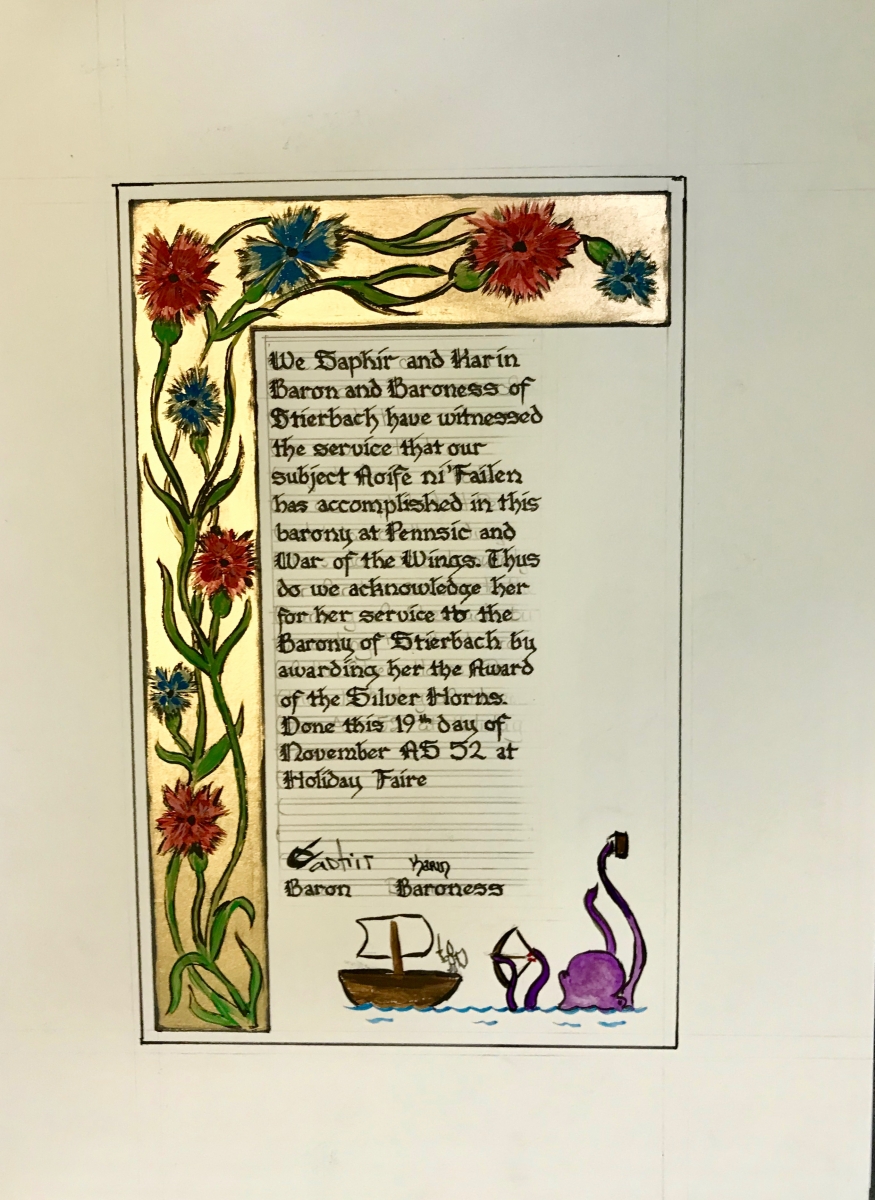 We Saphir and Karin
Baron and Baroness of
Stierbach have witnessed
the service that our
subject Aoife ni'Failen
has accomplished in this
barony at Pennsic and
War of the Wings. Thus
do we acknowledge her
for her service to the
Barony of Stierbach by
awarding her the Award
of the Silver Horns.
Done this 19th day of
November AS 52 at
Holiday Faire
Karin
Baron Baroness